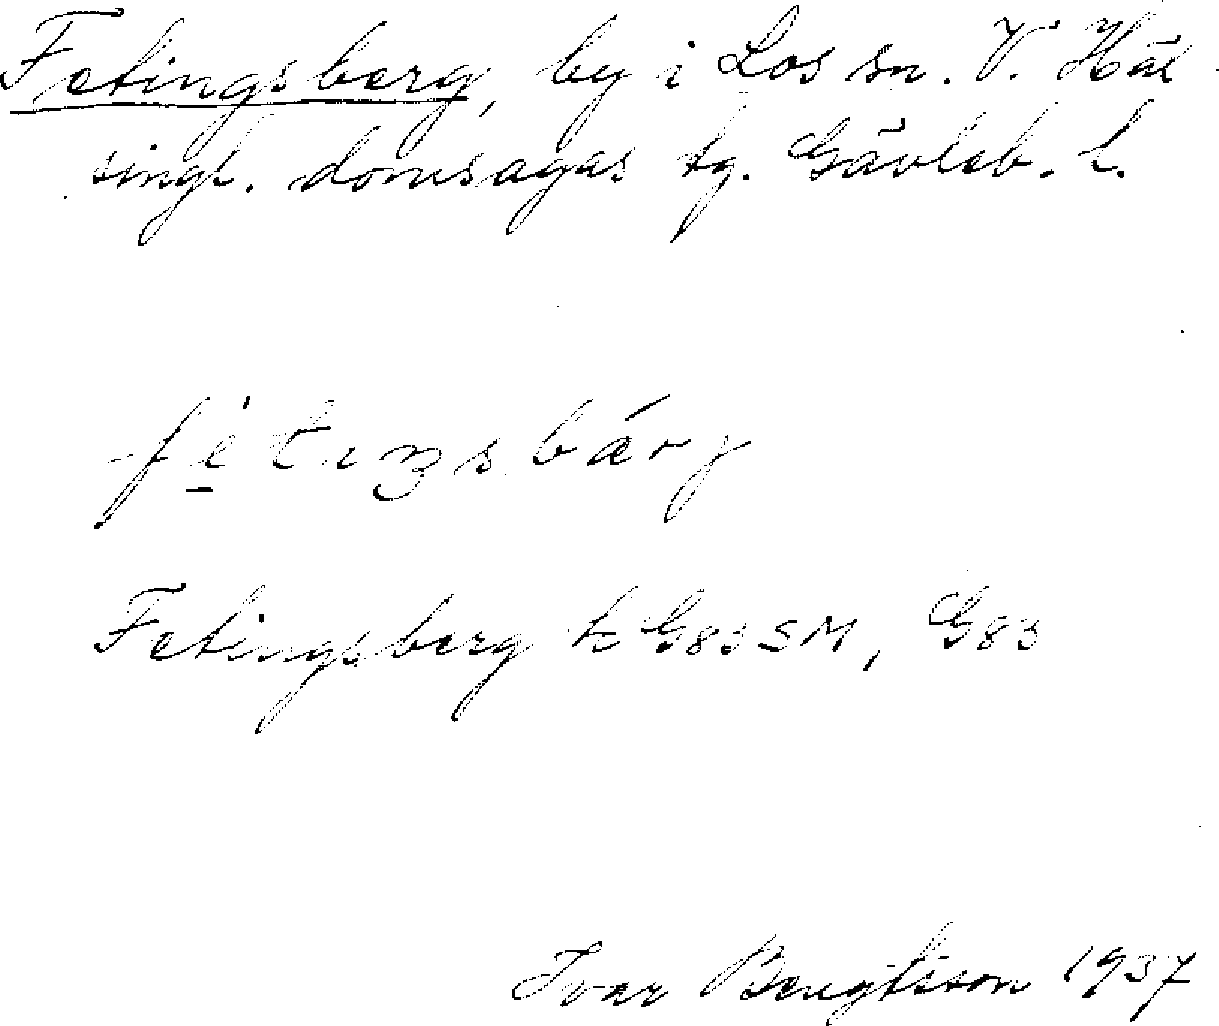 Fetingsberg, by i Los sn. V. Häl-
singl. domsagas tg. Gävleb. l.
Fetingsberg k G83SM, G83
Ivar Bengtsson 1937